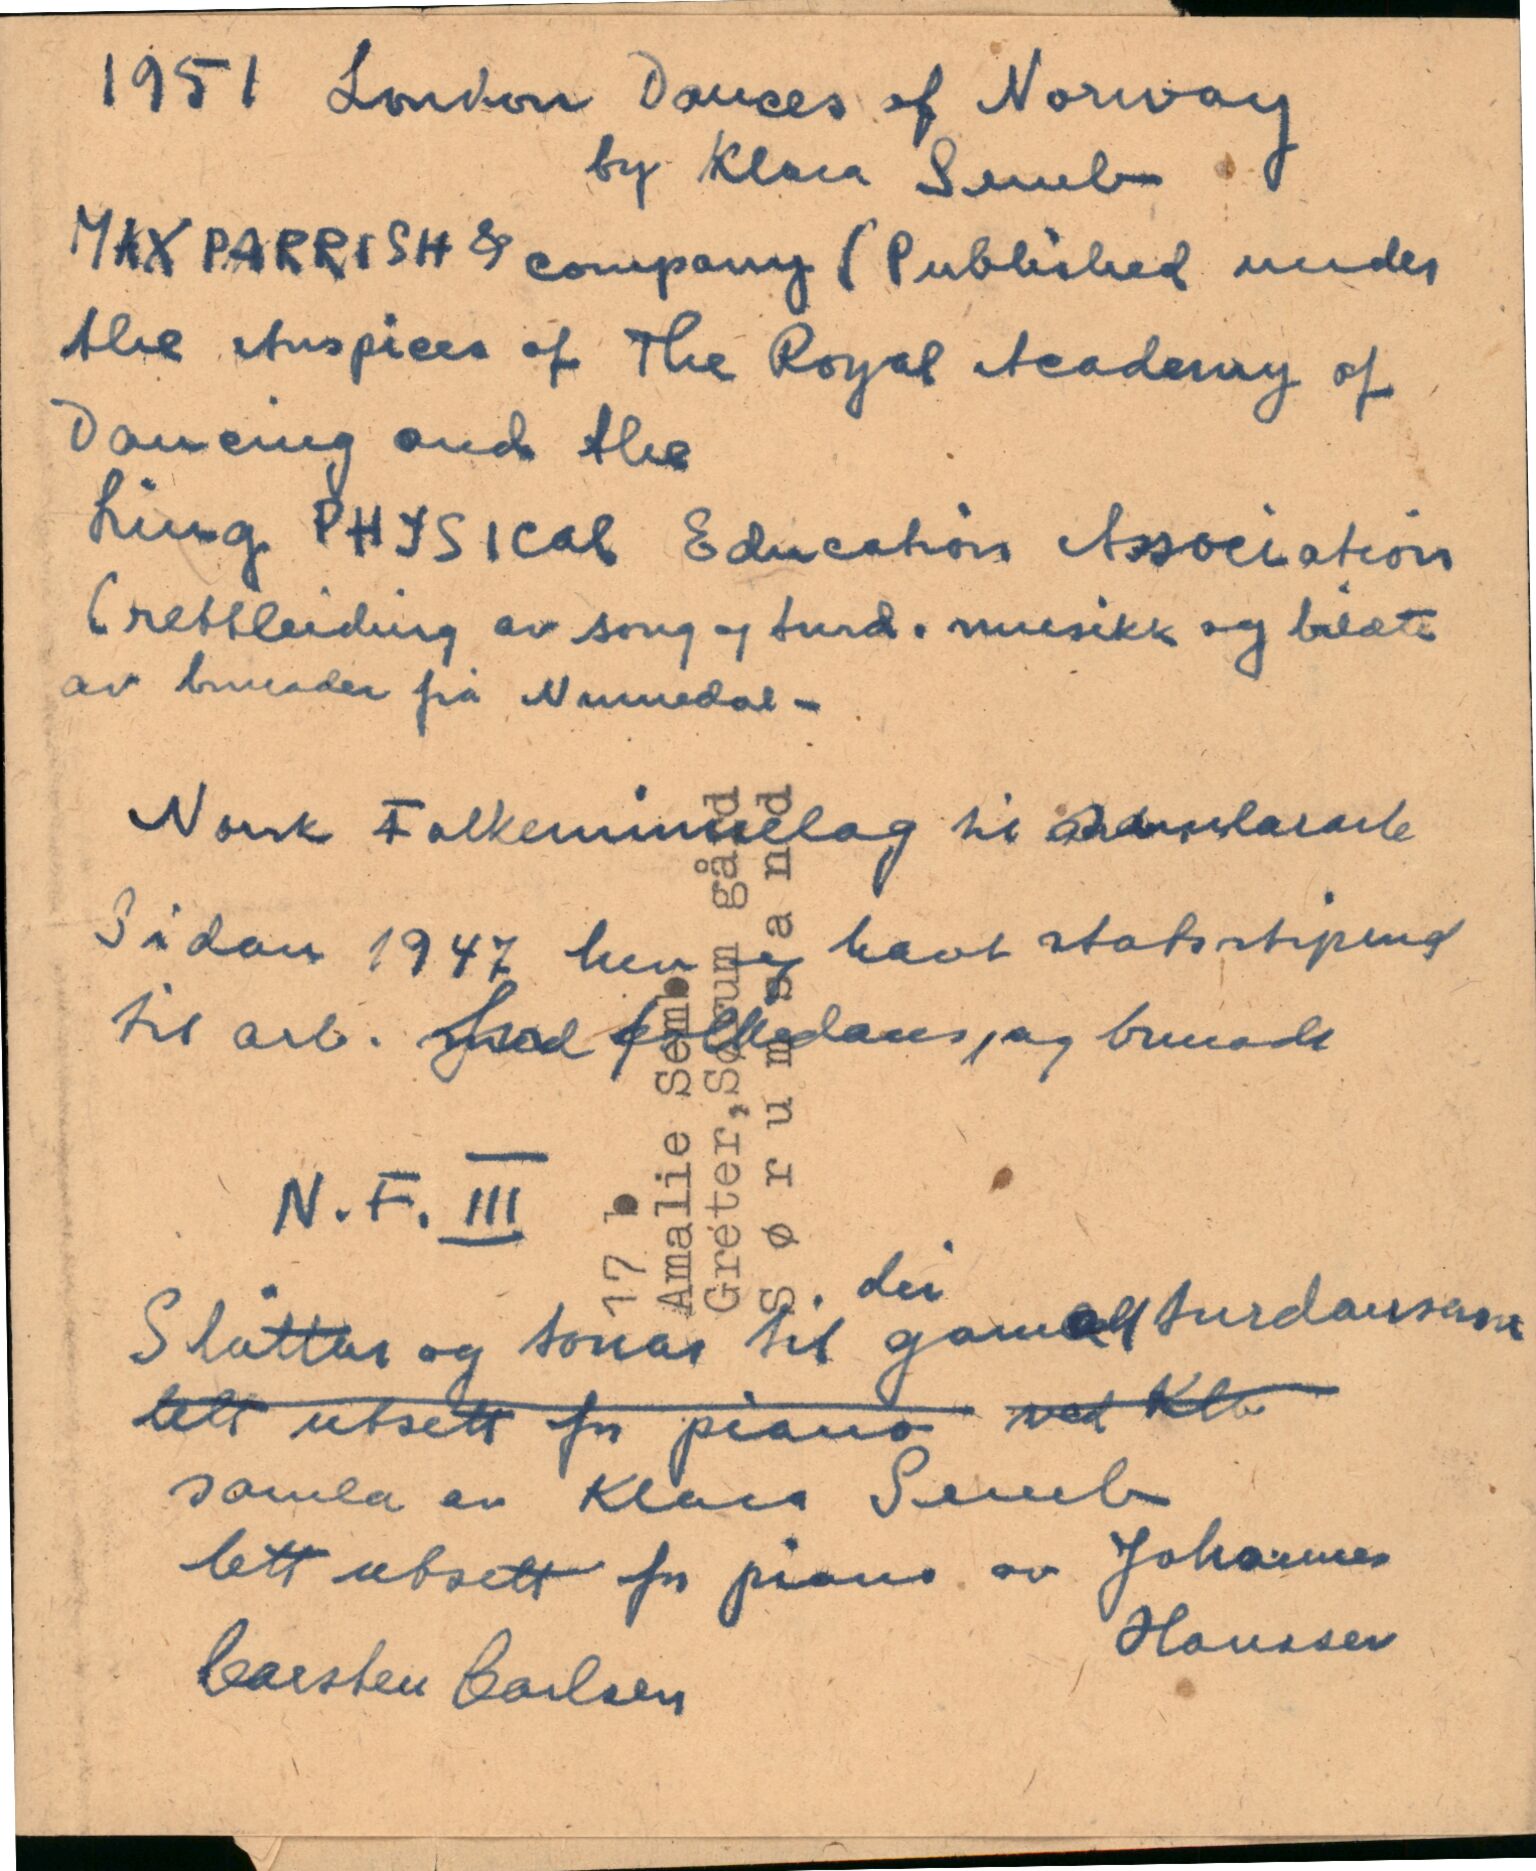 1951 London Dances of Norway
by Klara Semb
MAX PARRISH & company (Published under
the Auspices of The Royal Academy of
Dancing and the
Ling PHYSICAL Education Association
(rettleiding av song og turd. musikk og bilæte
av bunader frå Numedal -
Norsk Folkeminnelag til
Sidan 1947 hev eg havt statsstipend
til arb. med folkedans, og bunade
N.F. III
dei
Slåttar og tonar til gamall turdansarne
lett utsett for piano ved Kla
samla av Klara Semb
lett utsett for piano av Johannes
Hanssen
Carsten Carlsen
17 b
Amalie Semb
Greter, Sørum gård
Sørumsand